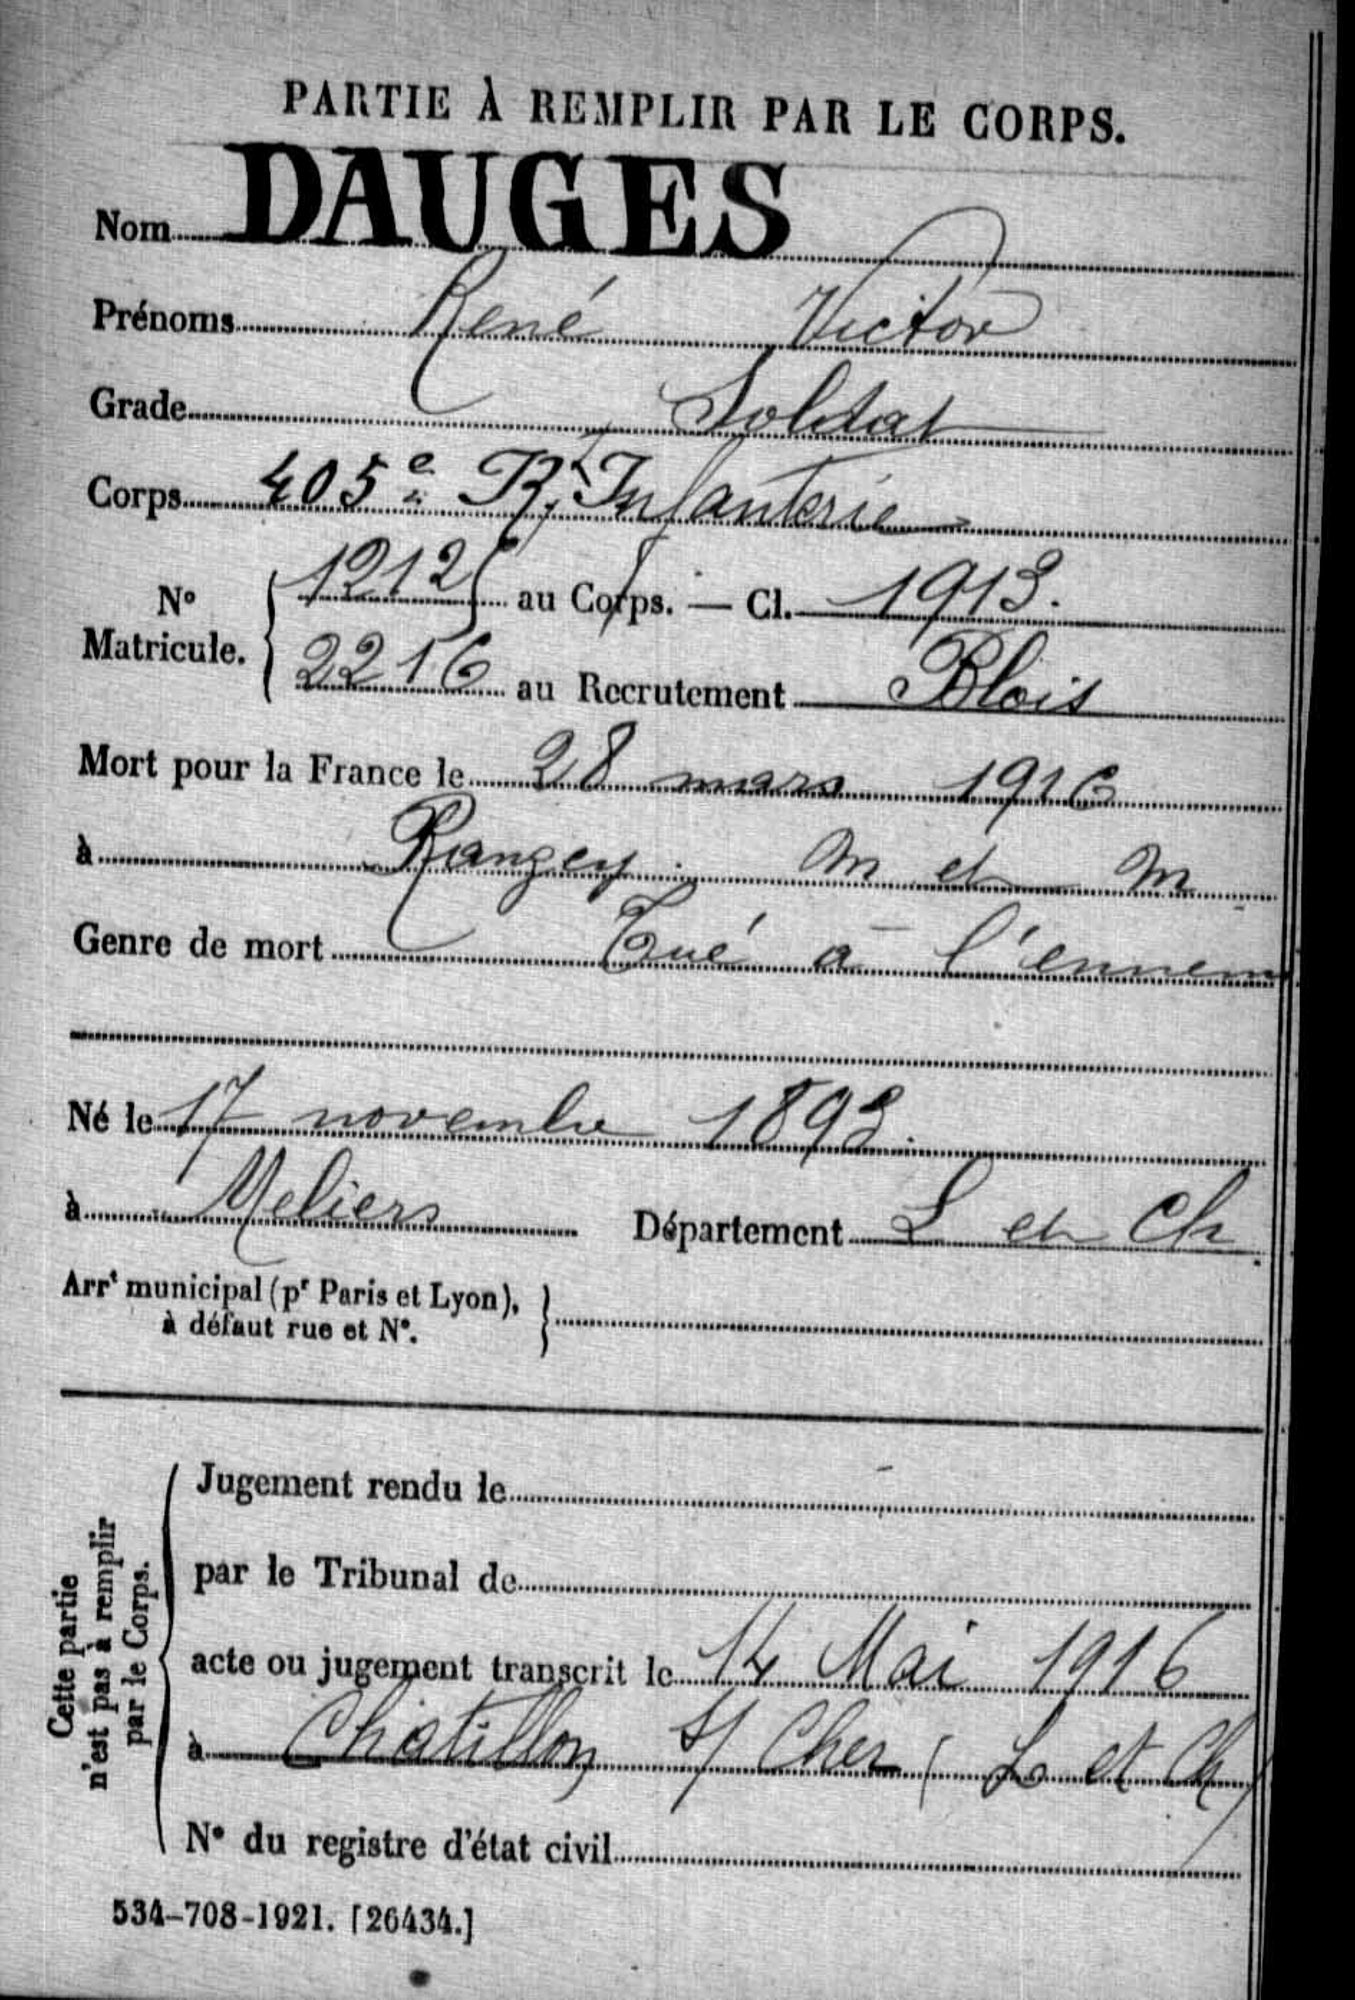 PARTIE À REMPLIR PAR LE CORPS.
Nom DAUGES
Prénoms René Victor
Grade Soldat
Corps 405e R^t Infanterie
N° Matricule. { 1212 au Corps. — Cl. 1913.
2216 au Recrutement Blois
Mort pour la France le 28 mars 1916
à Rangey. M et M
Genre de mort Tué à l'ennemi
Né le 17 novembre 1893.
à Meliers Département L et Ch
Arrt municipal (pr Paris et Lyon), }
à défaut rue et N°.
Cette partie
n'est pas à remplir
par le Corps.
Jugement rendu le
par le Tribunal de
acte ou jugement transcrit le 14 Mai 1916
à Chatillon S/ Cher (L et Ch)
N° du registre d'état civil
534-708-1921. [26434.]